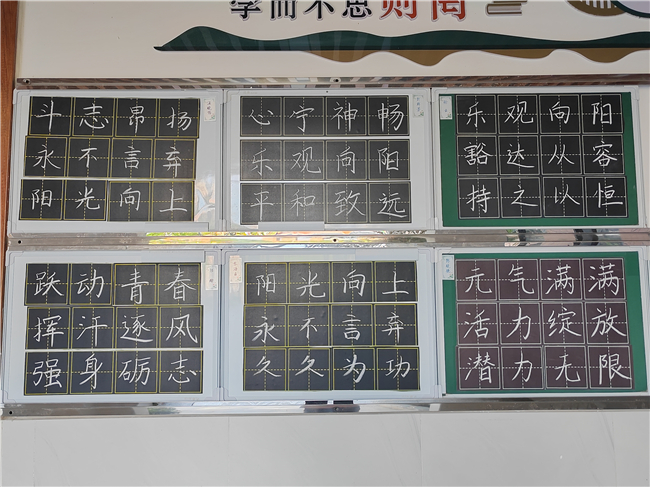 学而不思则罔
斗志昂扬
永不言弃
阳光向上
心宁神畅
乐观向阳
平和致远
乐观向阳
豁达从容
持之以恒
跃动青春
挥汗逐风
强身砺志
阳光向上
永不言弃
久久为功
元气满满
活力绽放
潜力无限